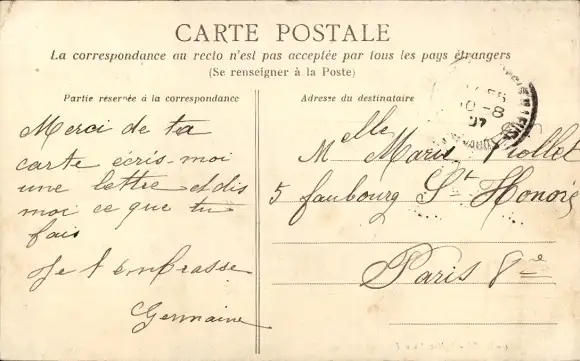 CARTE POSTALE
La correspondance au recto n'est pas acceptée par tous les pays étrangers
(Se renseigner à la Poste)
Partie réservée à la correspondance
Merci de ta
carte écris-moi
une lettre et dis
moi ce que tu
fais
Je t'embrasse
Germaine
Adresse du destinataire
Melle Marie
5 faubourg St Honoré
Paris 8e